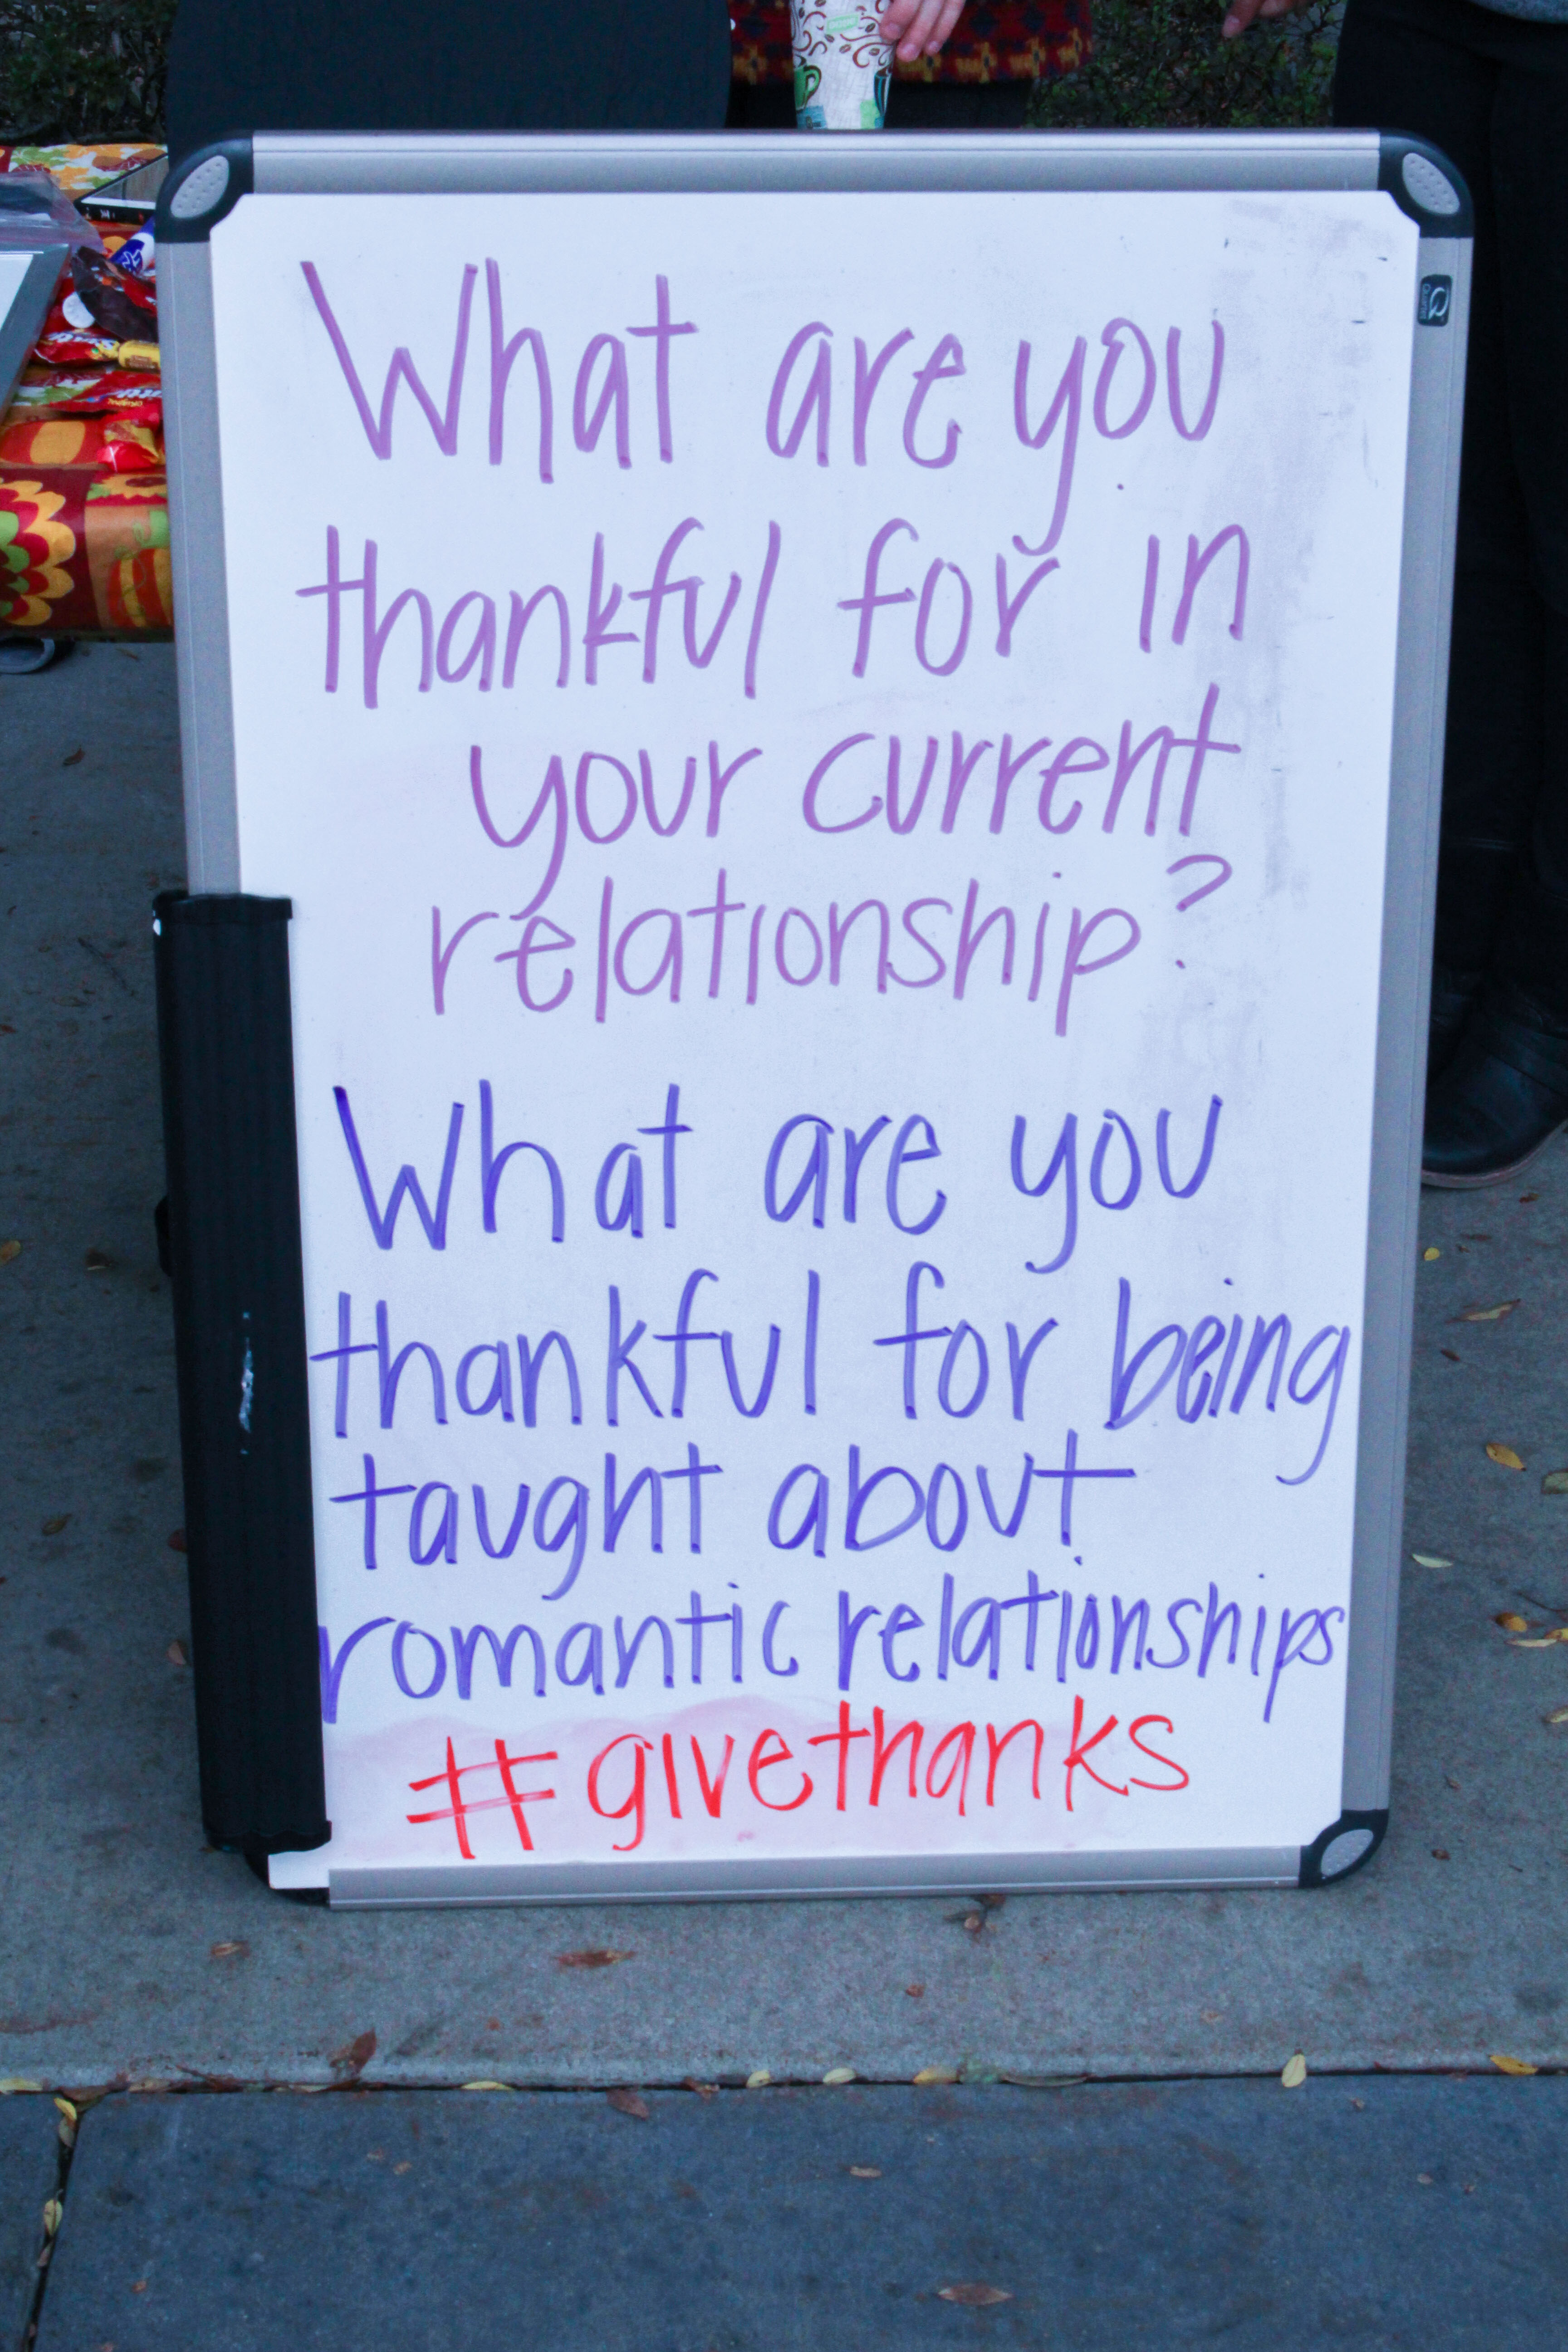 What are you
thankful for in
your current
relationship?
What are you
thankful for being
taught about
romantic relationships
#givethanks